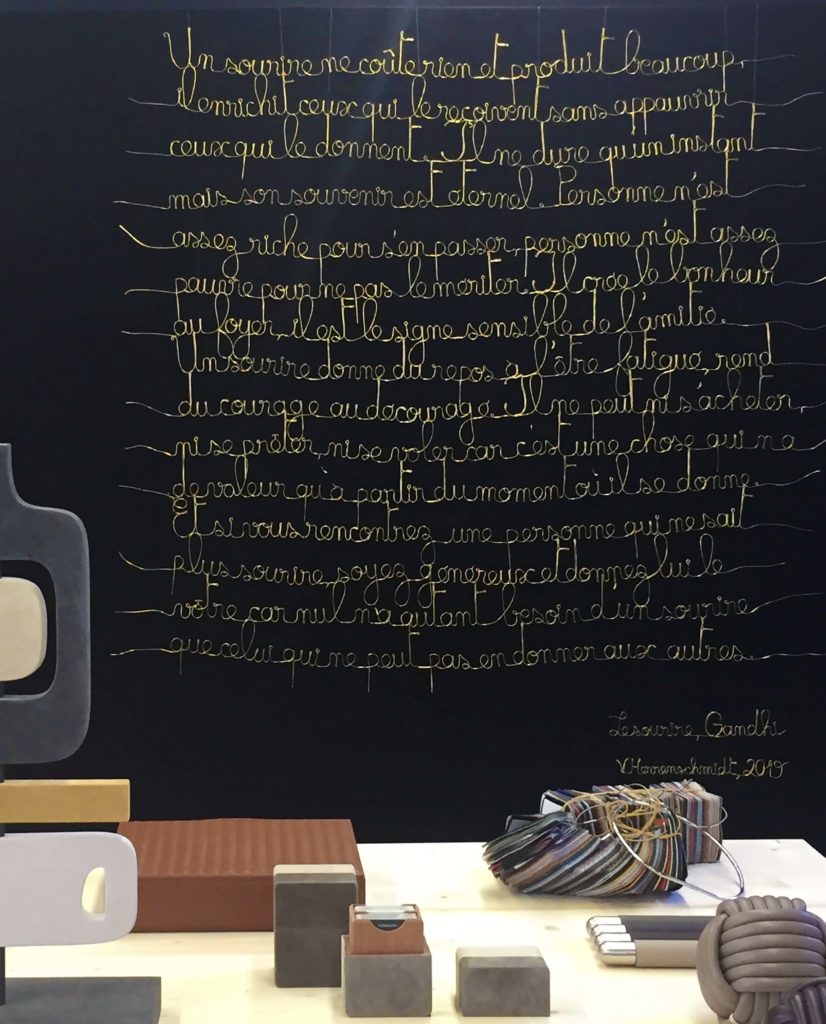 Un sourire ne coûte rien et produit beaucoup,
il enrichit ceux qui le reçoivent sans appauvrir
ceux qui le donnent. Il ne dure qu'un instant
mais son souvenir est éternel. Personne n'est
assez riche pour s'en passer, personne n'est assez
pauvre pour ne pas le mériter. Il crée le bonheur
au foyer, il est le signe sensible de l'amitié.
Un sourire donne du repos à l'être fatigué, rend
du courage au découragé. Il ne peut ni s'acheter,
ni se prêter, ni se voler car c'est une chose qui n'a
de valeur qu'à partir du moment où il se donne.
Et si vous rencontrez une personne qui ne sait
plus sourire, soyez généreux et donnez lui le
vôtre car nul n'a autant besoin d'un sourire
que celui qui ne peut pas en donner aux autres.
Le sourire, Gandhi
V.Herrenschmidt, 2019